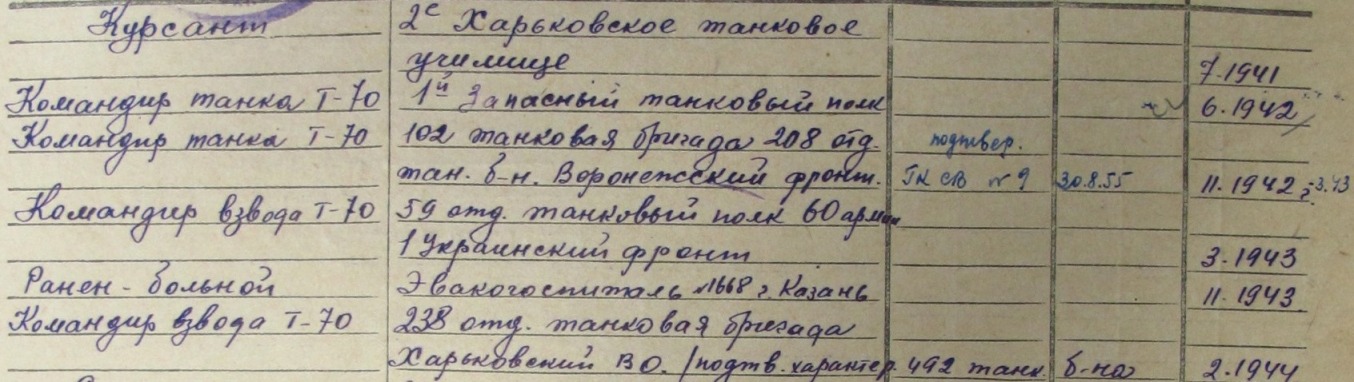 Курсант 2е Харьковское танковое
училище 7.1941
Командир танка Т-70 1й Запасный танковый полк 6.1942
Командир танка Т-70 102 танковая бригада 208 отд. подтвер.
тан. б-н. Воронежский фронт. ГК СВ №9 30.8.55 11.1942 г-3.43
Командир взвода Т-70 59 отд. танковый полк 60 армии
1 Украинский фронт 3.1943
Ранен-больной Эвакогоспиталь №1668 г. Казань 11.1943
Командир взвода Т-70 238 отд. танковая бригада
Харьковский ВО. /подтв. характер. 492 танк. б-на 2.1944